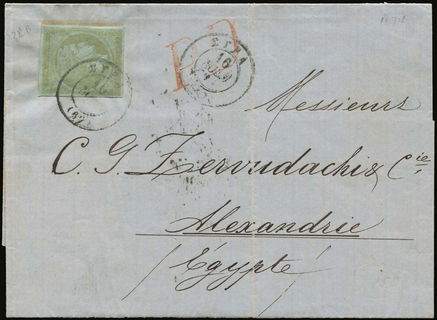 PD
ΣΥΡΑ
16
(67)
Messieurs
C. G. Zervudachi & Cie,
Alexandrie
/Égypte/